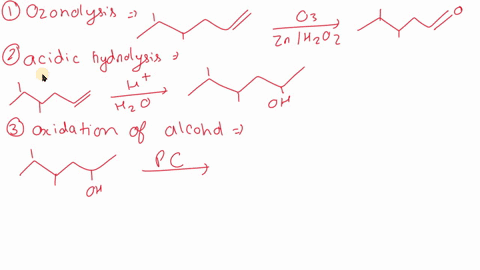 ① Ozonolysis ⇒
O3
Zn/H2O2
O
② acidic hydnolysis ⇒
H+
H2O
OH
③ oxidation of alcohol ⇒
PC
OH